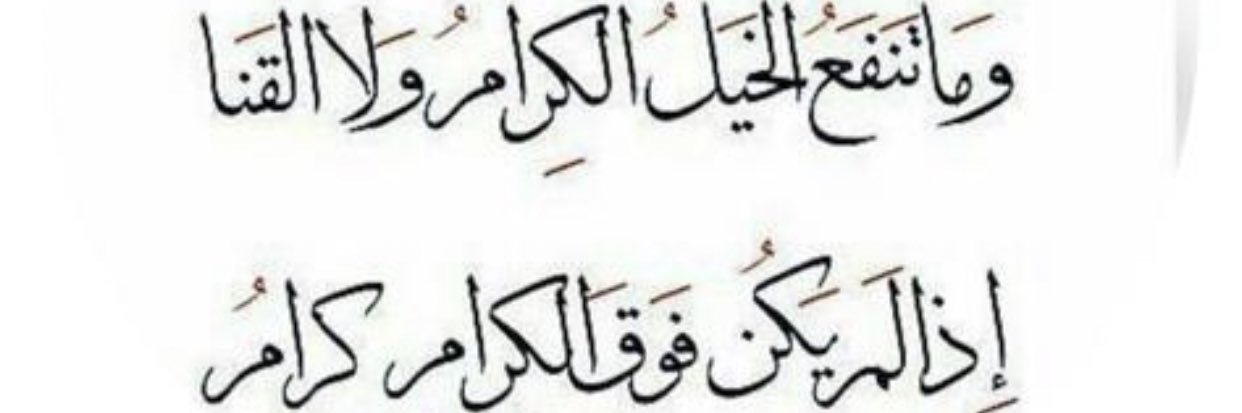 وَمَا تَنفَعُ الخَيلُ الكِرَامُ وَلَا القَنا
إِذا لَم يَكُن فَوقَ الكرام كرامُ